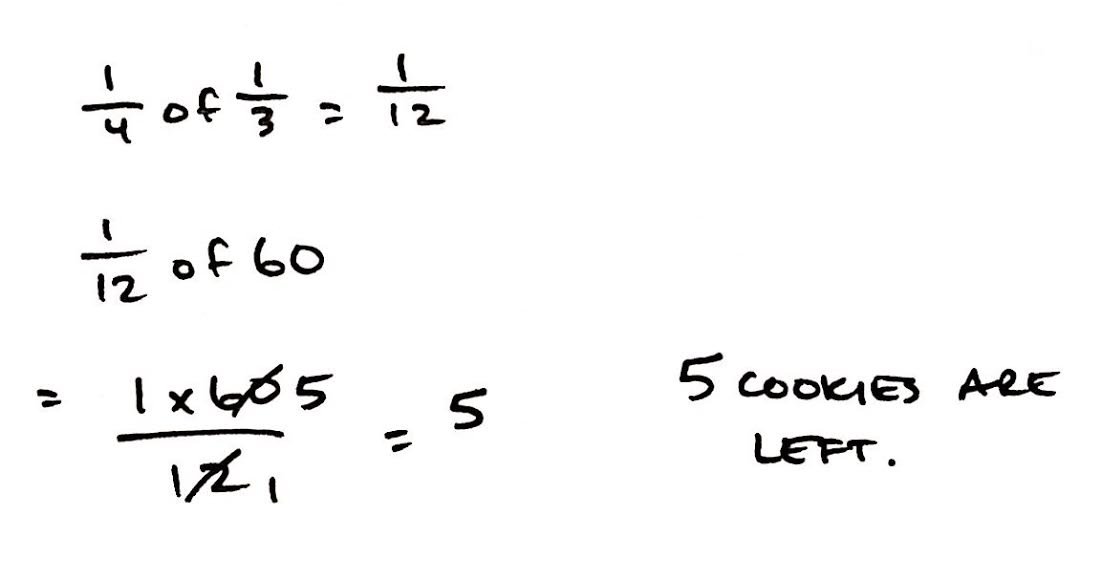 1/4 of 1/3 = 1/12
1/12 of 60
= 1 x 60 5 / 12 1 = 5
5 COOKIES ARE
LEFT.